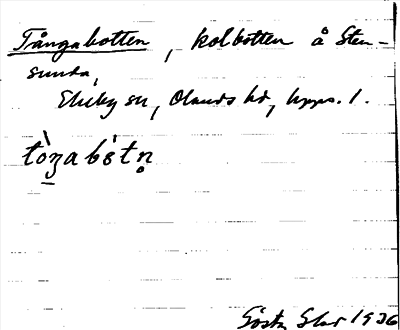 Tångabotten, kolbotten å Sten-
sunda,
Ekeby sn, Olands hd, Upps. l.
tòŋabótn̥
Gösta 1936